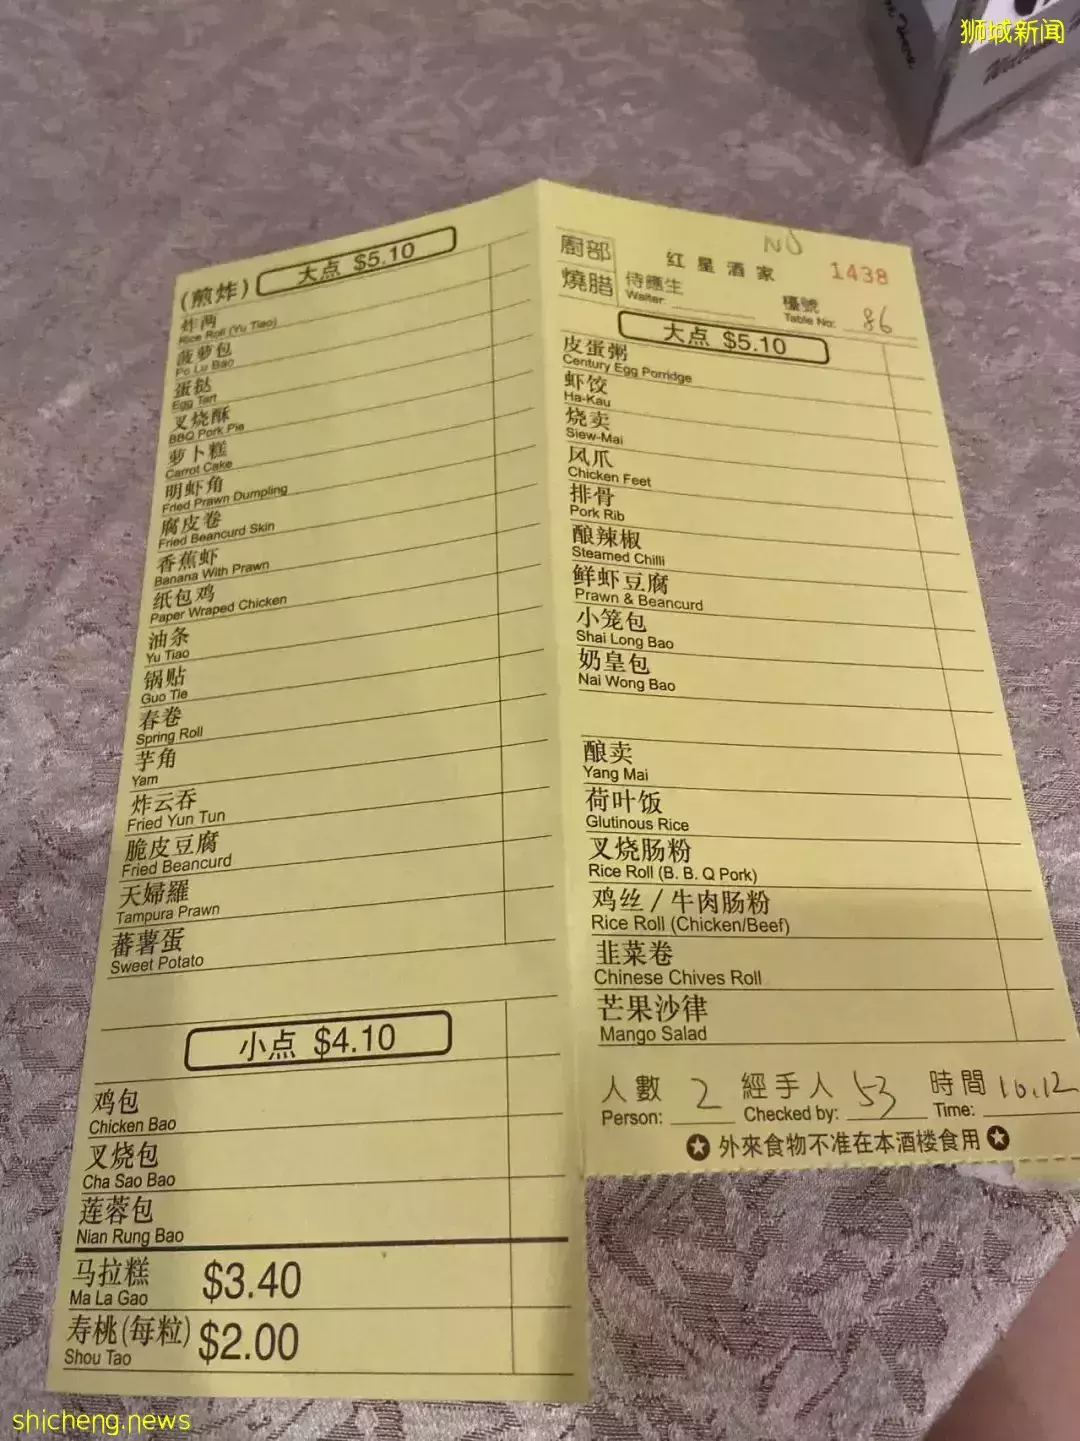 狮城新闻
(煎炸) 大点 $5.10
炸两
Rice Roll (Yu Tiao)
菠萝包
Po Lu Bao
蛋挞
Egg Tart
叉烧酥
BBQ Pork Pie
萝卜糕
Carrot Cake
明虾角
Fried Prawn Dumpling
腐皮卷
Fried Beancurd Skin
香蕉虾
Banana With Prawn
纸包鸡
Paper Wraped Chicken
油条
Yu Tiao
锅贴
Guo Tie
春卷
Spring Roll
芋角
Yam
炸云吞
Fried Yun Tun
脆皮豆腐
Fried Beancurd
天婦羅
Tampura Prawn
蕃薯蛋
Sweet Potato
小点 $4.10
鸡包
Chicken Bao
叉烧包
Cha Sao Bao
莲蓉包
Nian Rung Bao
马拉糕 $3.40
Ma La Gao
寿桃(每粒) $2.00
Shou Tao
NO
厨部 红星酒家 1438
燒腊 侍應生 檯號
Waiter: Table No: 86
大点 $5.10
皮蛋粥
Century Egg Porridge
虾饺
Ha-Kau
烧卖
Siew-Mai
凤爪
Chicken Feet
排骨
Pork Rib
酿辣椒
Steamed Chilli
鲜虾豆腐
Prawn & Beancurd
小笼包
Shai Long Bao
奶皇包
Nai Wong Bao
酿卖
Yang Mai
荷叶饭
Glutinous Rice
叉烧肠粉
Rice Roll (B. B. Q Pork)
鸡丝 / 牛肉肠粉
Rice Roll (Chicken/Beef)
韭菜卷
Chinese Chives Roll
芒果沙律
Mango Salad
人數 2 經手人 53 時間 10.12
Person: Checked by: Time:
外來食物不准在本酒楼食用
shicheng.news